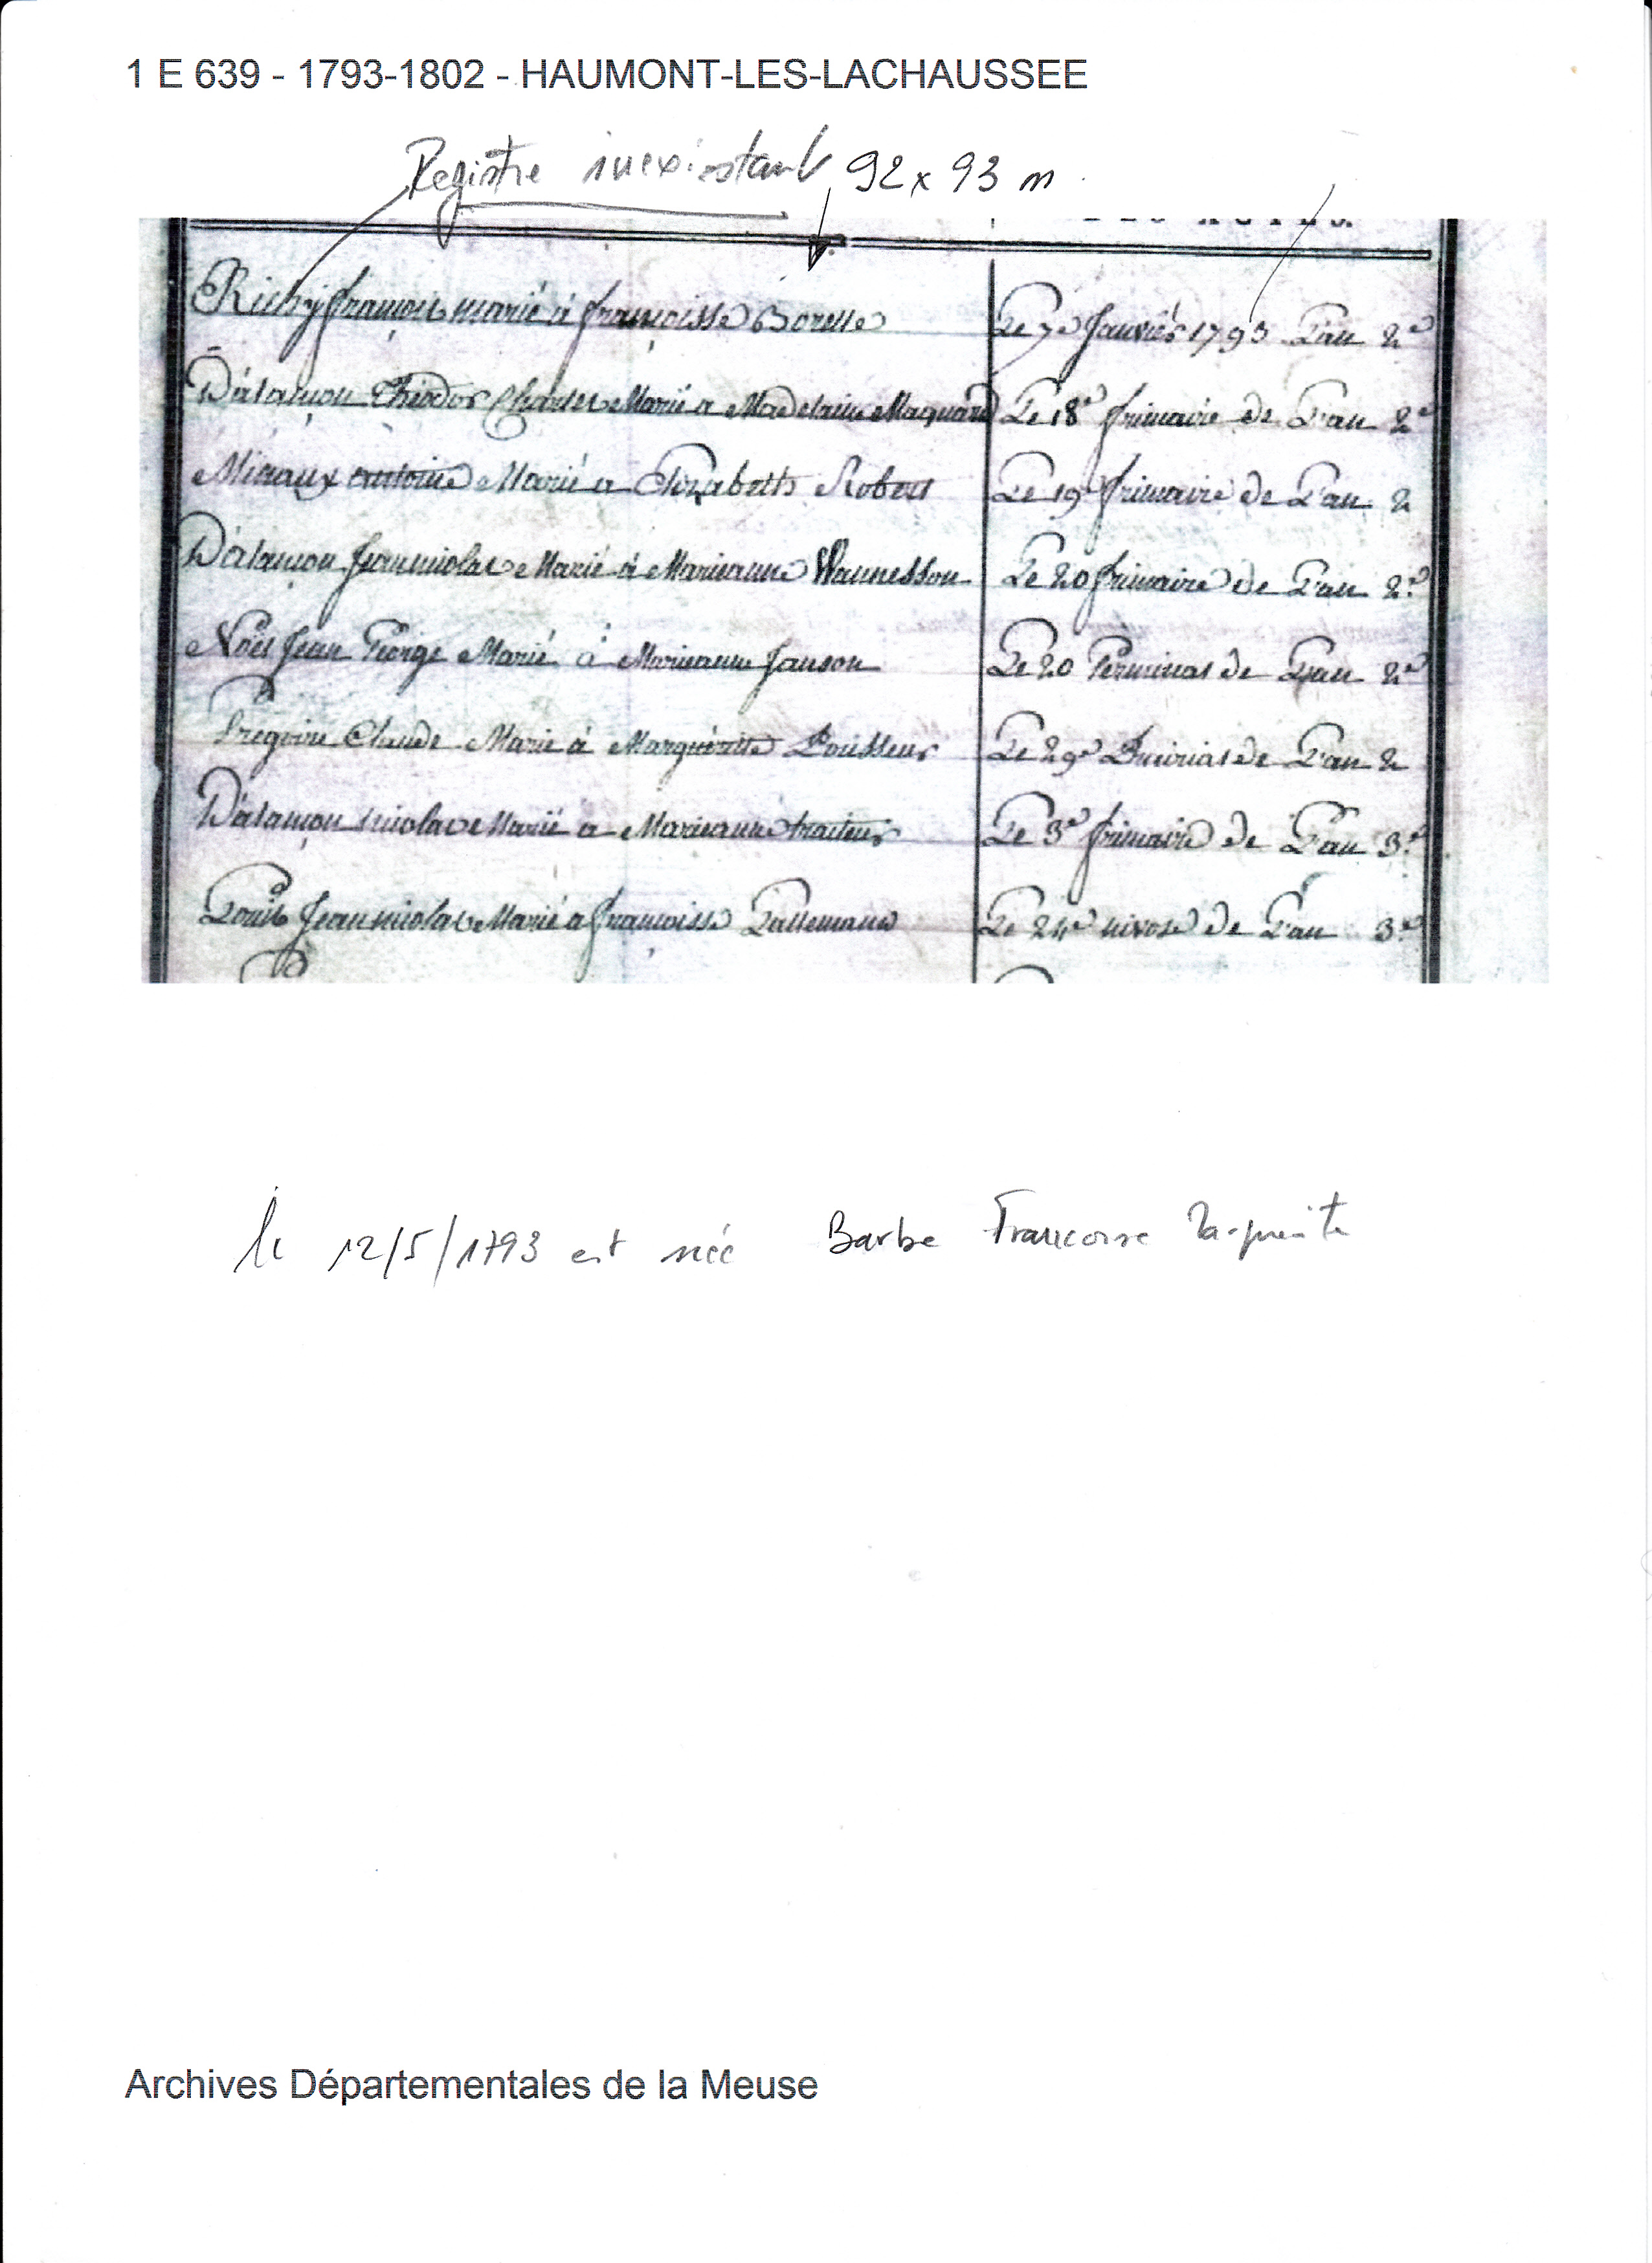 1 E 639 - 1793-1802 - HAUMONT-LES-LACHAUSSEE
Registre inexistant 92 x 93 m
Richy françois marié à françoisse Borelle Le 7e Janvier 1793 L'an 2e
Dalançon Théodor Charles Marié a Madelaine Maquard Le 18e frimaire de L'an 2e
antoine Marié a Elizabeth Robert Le 19e frimaire de L'an 2
Dalançon Jean nicolas Marié à Marieanne Wannesson Le 20 frimaire de L'an 2e
Noël Jean George Marié à Marieanne Janson Le 20 Germinal de L'an 2e
Grégoire Claude Marié à Marguéritte Le 29e de L'an 2
Dalançon nicolas Marié a Marieanne traiteur Le 3e frimaire de L'an 3e
Louis Jean nicolas Marié a françoisse Lallemand Le 24e nivose de L'an 3e
le 12/5/1793 est née Barbe Francoise
Archives Départementales de la Meuse